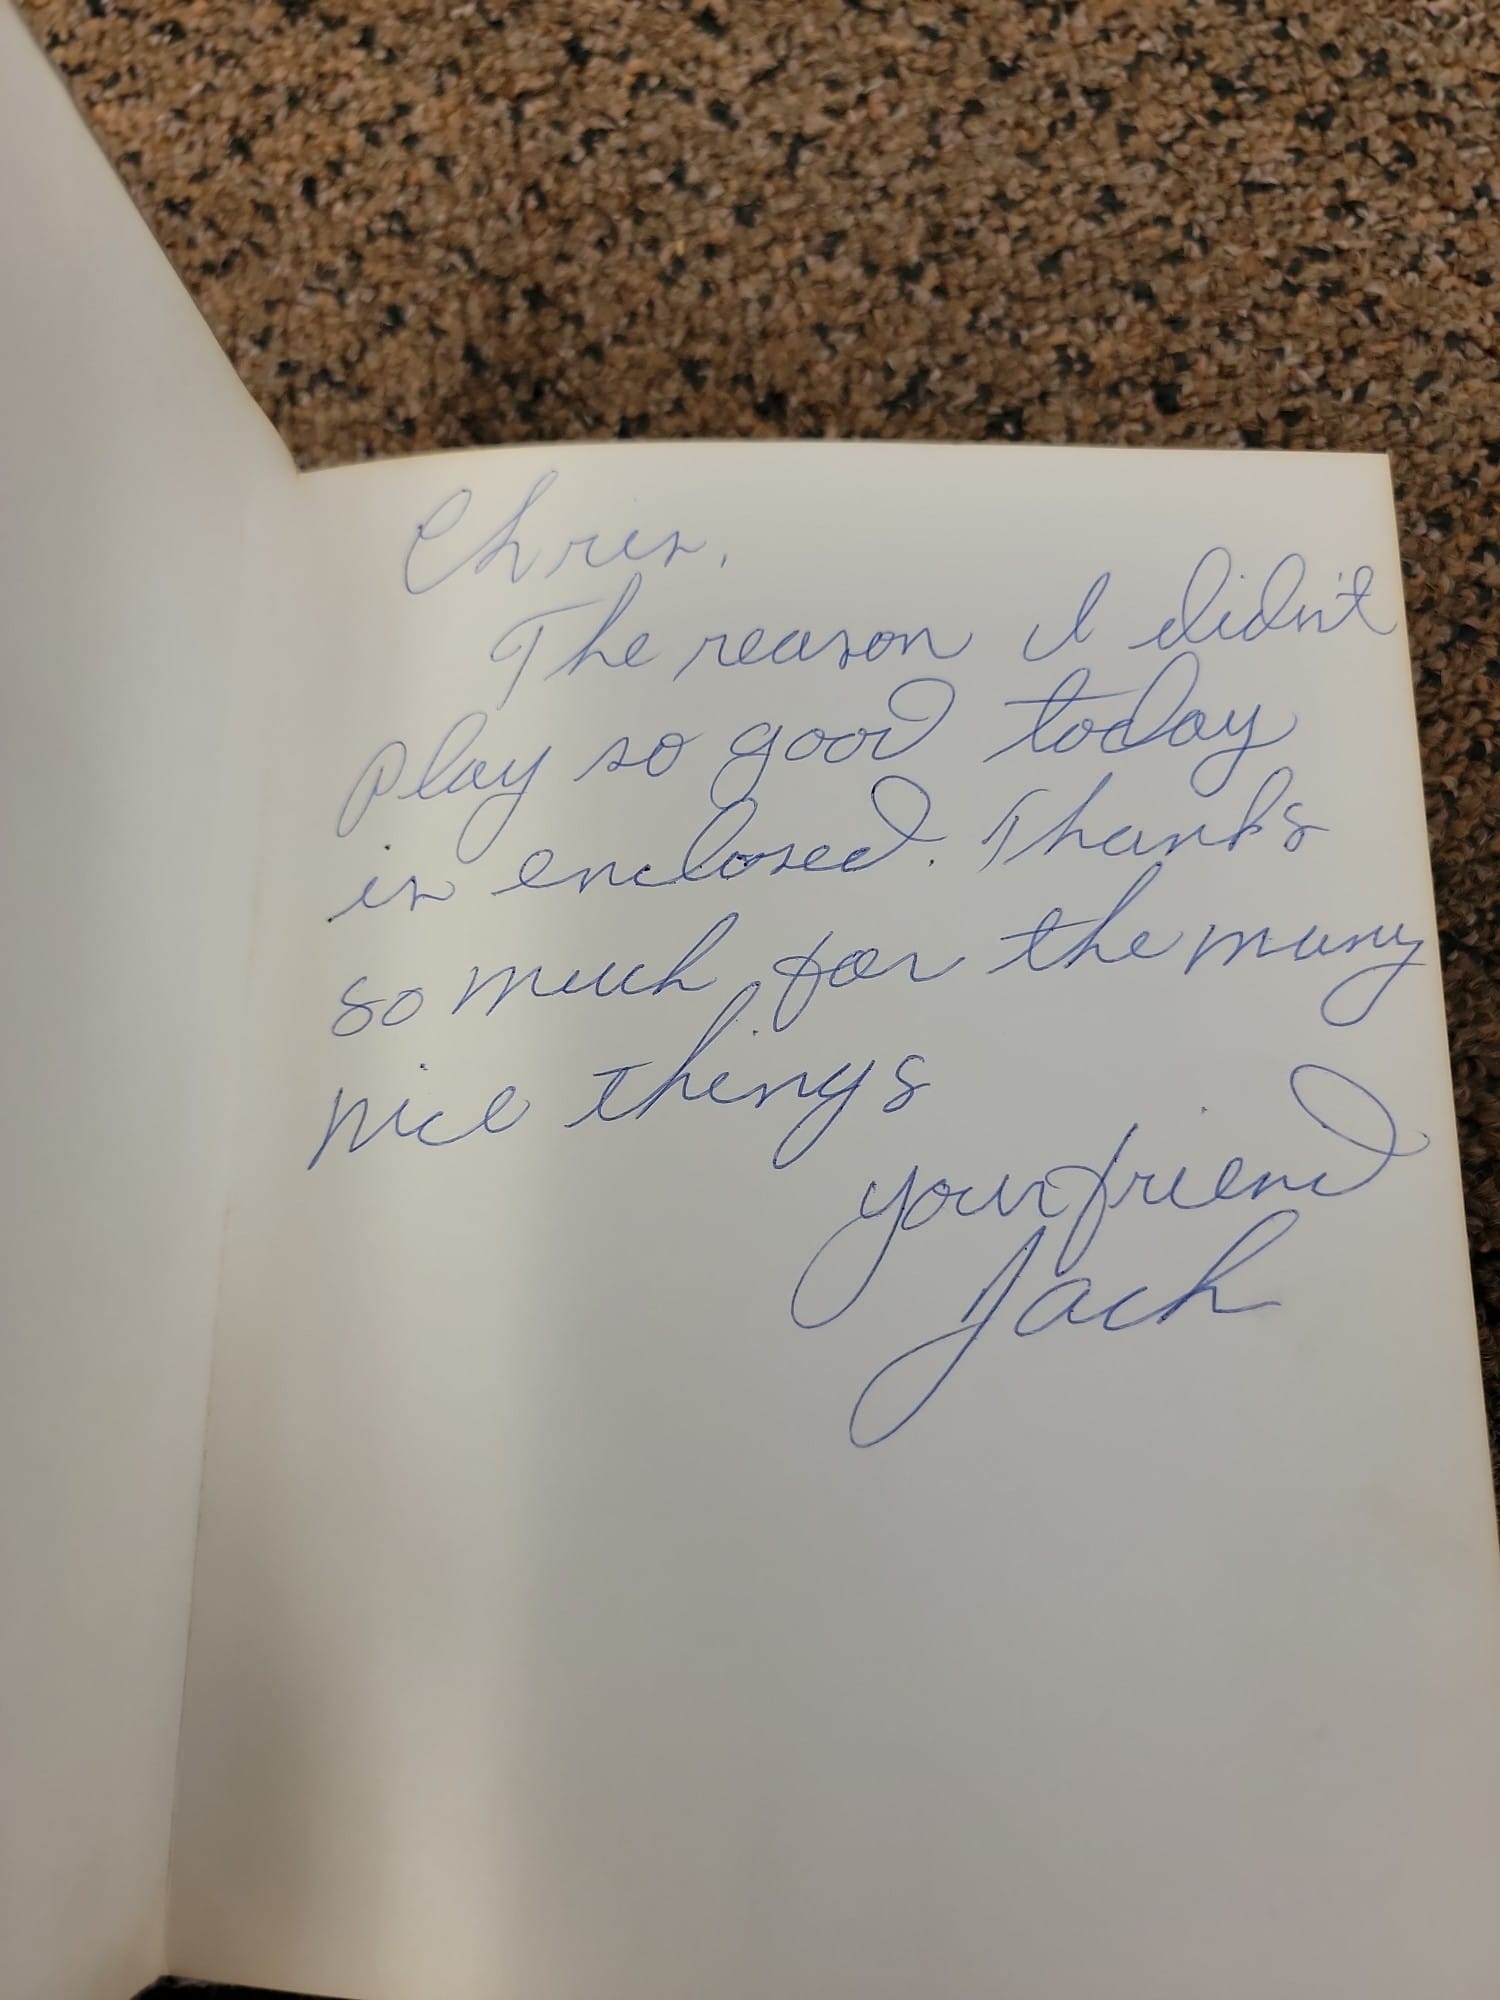 Chris,
The reason I didn't
play so good today
is enclosed. Thanks
so much for the many
nice things
your friend
Jack